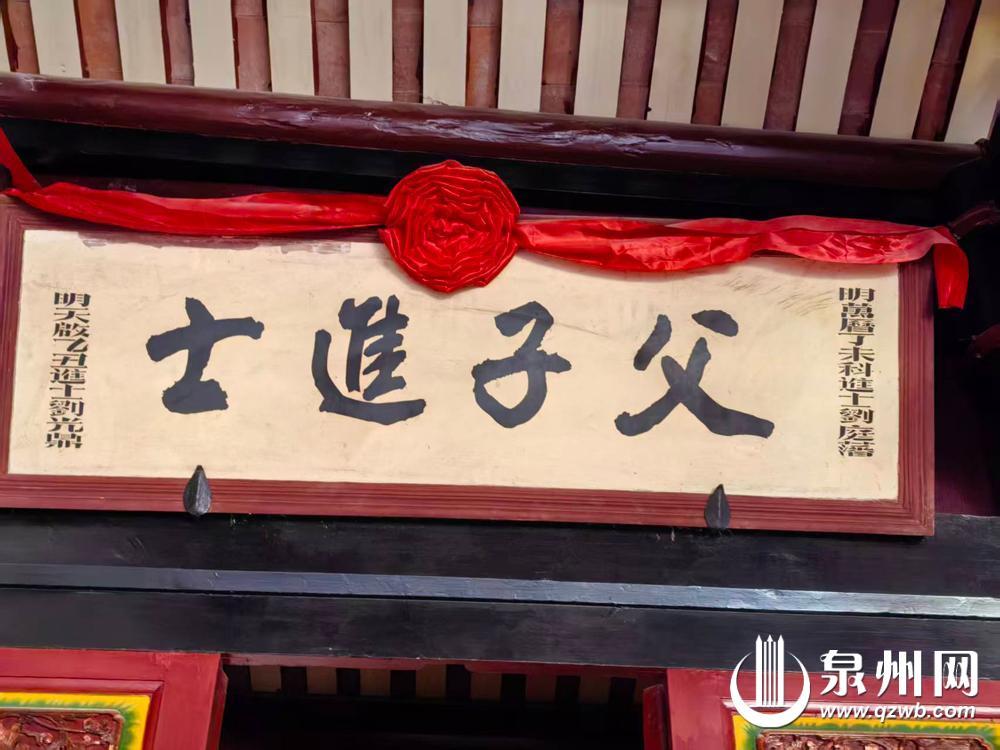 明萬曆丁未科進士劉庭蕃
父子進士
明天啟乙丑進士劉光鼎
泉州网
www.qzwb.com